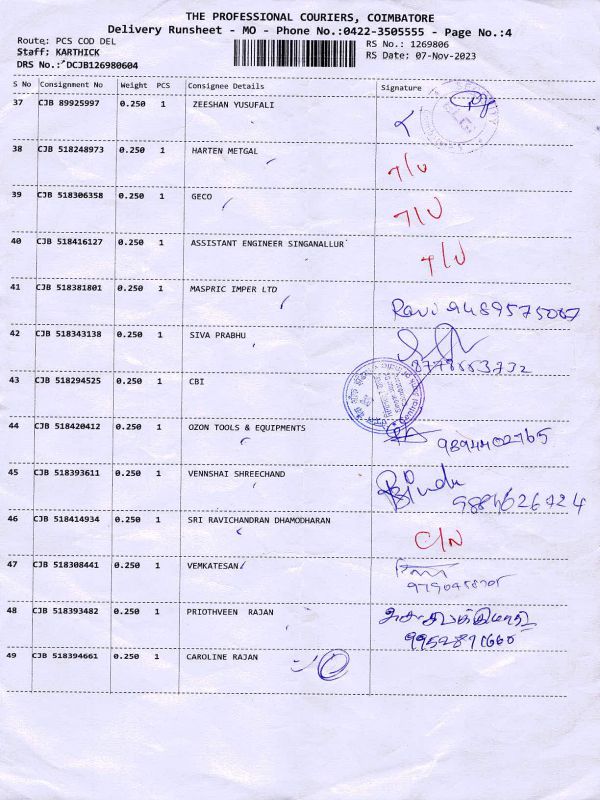 THE PROFESSIONAL COURIERS, COIMBATORE
Delivery Runsheet - MO - Phone No.:0422-3505555 - Page No.:4
Route: PCS COD DEL
Staff: KARTHICK
DRS No.: DCJB126980604
RS No.: 1269806
RS Date: 07-Nov-2023
S No Consignment No Weight PCS Consignee Details Signature
37 CJB 89925997 0.250 1 ZEESHAN YUSUFALI
38 CJB 518248973 0.250 1 HARTEN METGAL
39 CJB 518306358 0.250 1 GECO
40 CJB 518416127 0.250 1 ASSISTANT ENGINEER SINGANALLUR
41 CJB 518381801 0.250 1 MASPRIC IMPER LTD Ravi
42 CJB 518343138 0.250 1 SIVA PRABHU
43 CJB 518294525 0.250 1 CBI
44 CJB 518420412 0.250 1 OZON TOOLS & EQUIPMENTS
45 CJB 518393611 0.250 1 VENNSHAI SHREECHAND Bindu
9884626724
46 CJB 518414934 0.250 1 SRI RAVICHANDRAN DHAMODHARAN C/N
47 CJB 518308441 0.250 1 VEMKATESAN
48 CJB 518393482 0.250 1 PRIOTHVEEN RAJAN
49 CJB 518394661 0.250 1 CAROLINE RAJAN